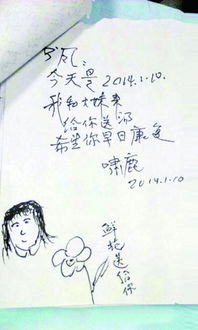 今天是2014.1.10.
我和大妹来
给你送汤
希望你早日康复
啸鹿
2014.1.10
鲜花送给你